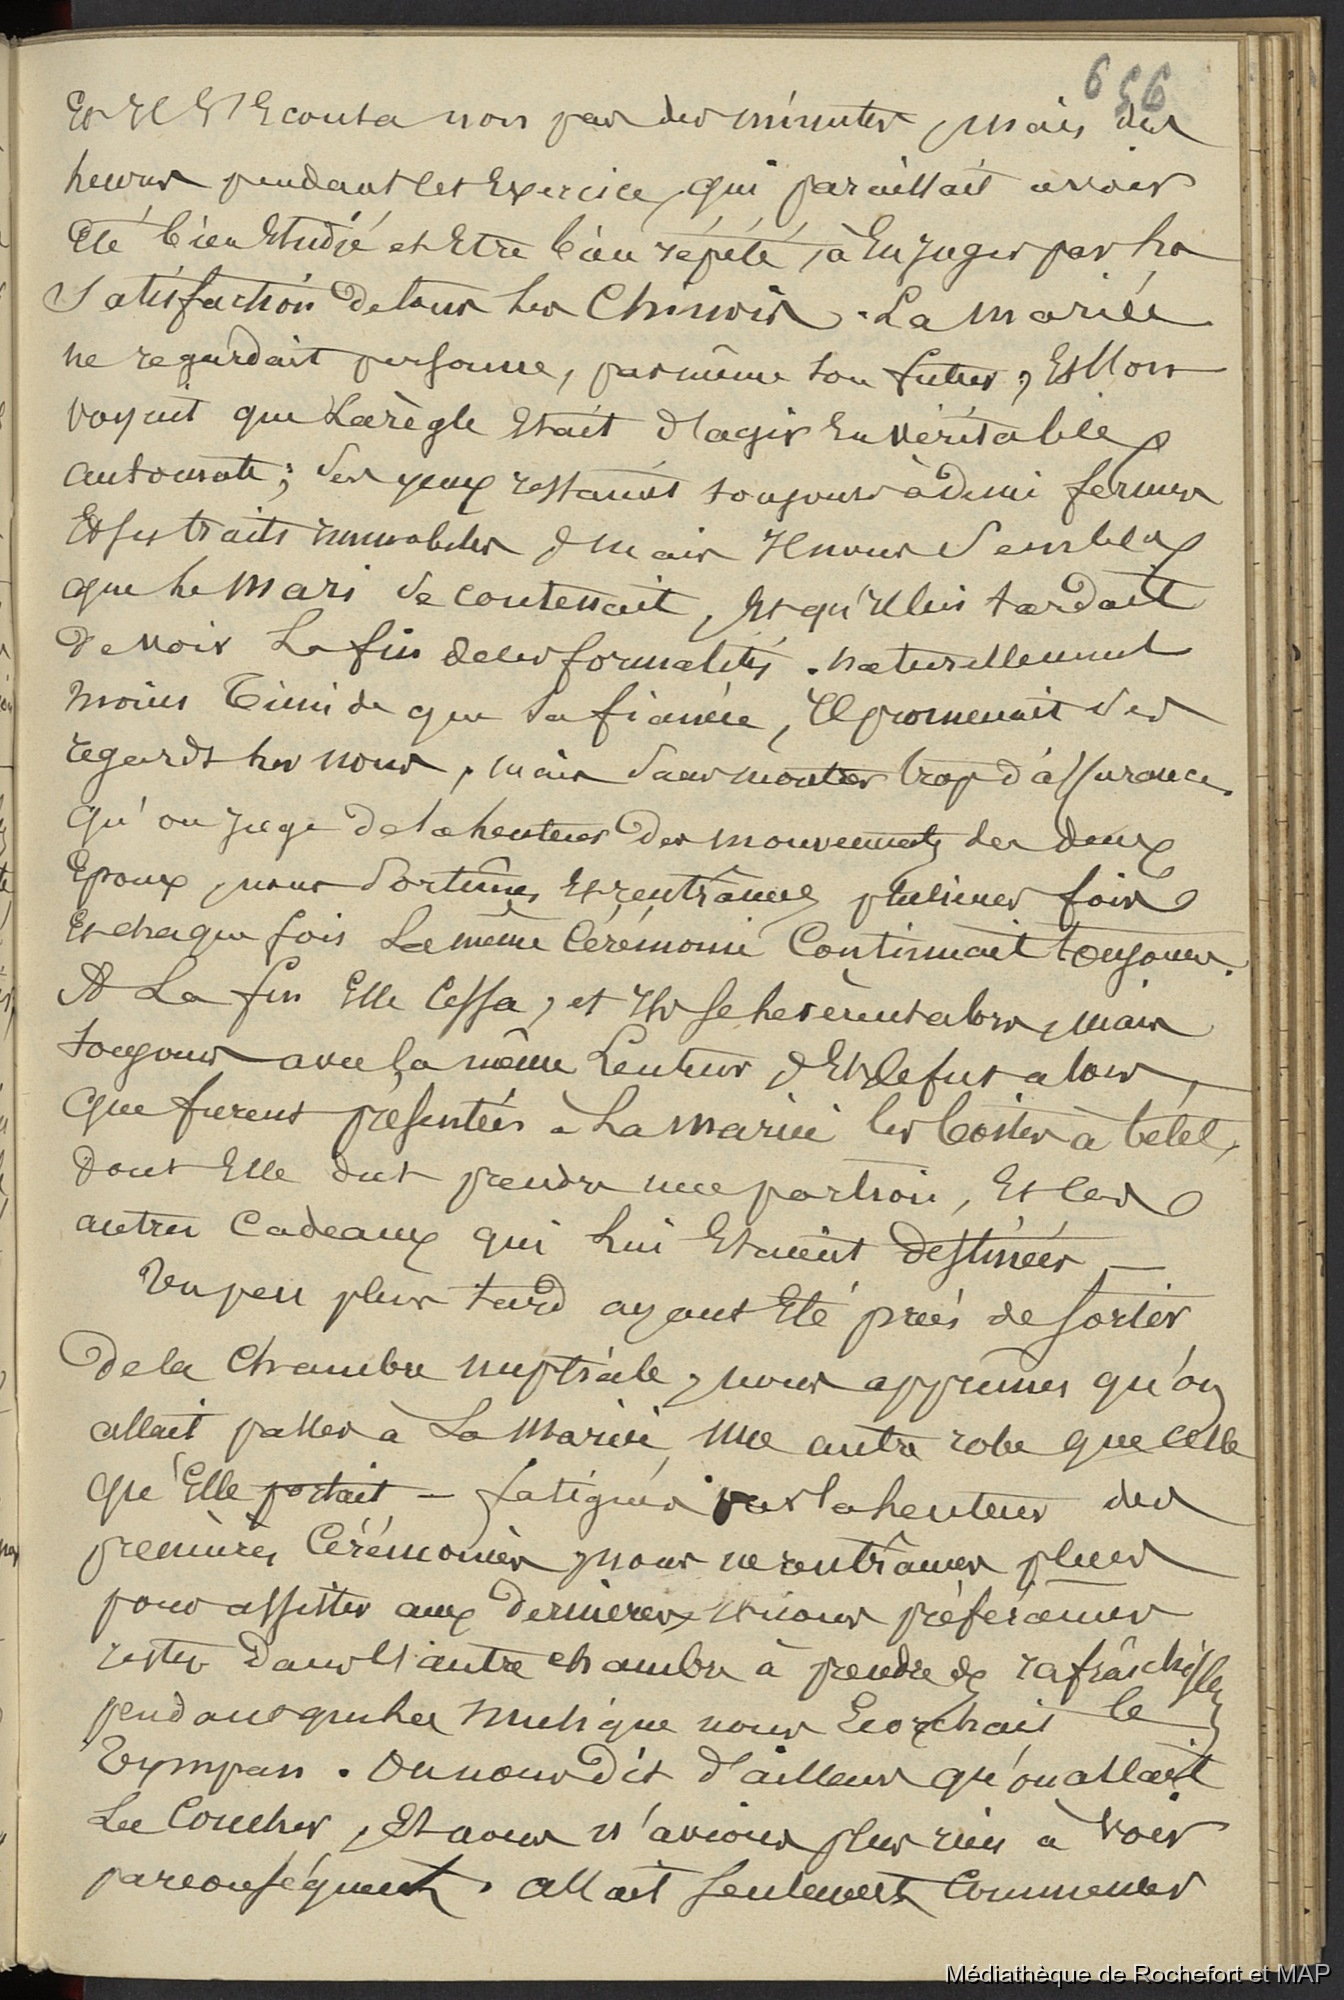 656
Et Il S'Ecoula non pas des minutes, mais des
heures pendant cet Exercice, qui paraissait avoir
Eté bien Etudié et Etre bien répété, à En juger par la
Satisfaction de tous les Chinois. La mariée
ne regardait personne, pas même son futur, Et l'on
voyait que La règle Etait d'agir En véritable
automate; Ses yeux restaient toujours à demi fermés
Et ses traits immobiles mais Il nous Sembla
que le Mari Se contenait, Et qu'Il lui tardait
De voir La fin de ces formalités. naturellement
moins Timide que Sa fiancée, Il promenait Ses
regards sur nous, mais Sans montrer trop d'assurance.
qu'on juge de la lenteur Des mouvements des deux
Epoux, nous Sortîmes Et rentrâmes plusieurs fois
Et chaque fois La même Cérémonie Continuait toujours.
A La fin Elle Cessa, et Ils se levèrent alors, mais
toujours avec la même Lenteur Et Ce fut alors,
que furent présentées à La mariée les boites à bétel,
dont Elle dut prendre une portion, Et les
autres Cadeaux qui lui Etaient destinées —
Un peu plus tard ayant Eté priés de sortir
De la Chambre nuptiale, nous apprîmes qu'on
allait passer à La Mariée, une autre robe que celle
qu'Elle portait — fatigués par la lenteur des
premières Cérémonies, nous ne rentrâmes plus
pour assister aux Dernières, Et nous préférâmes
rester Dans l'autre chambre à prendre des
pendant que la Musique nous Ecorchait le
Tympan. On nous Dit d'ailleurs qu'on allait
Les Coucher, Et nous n'avions plus rien à voir
par conséquent. allait seulement Commencer
Médiathèque de Rochefort et MAP